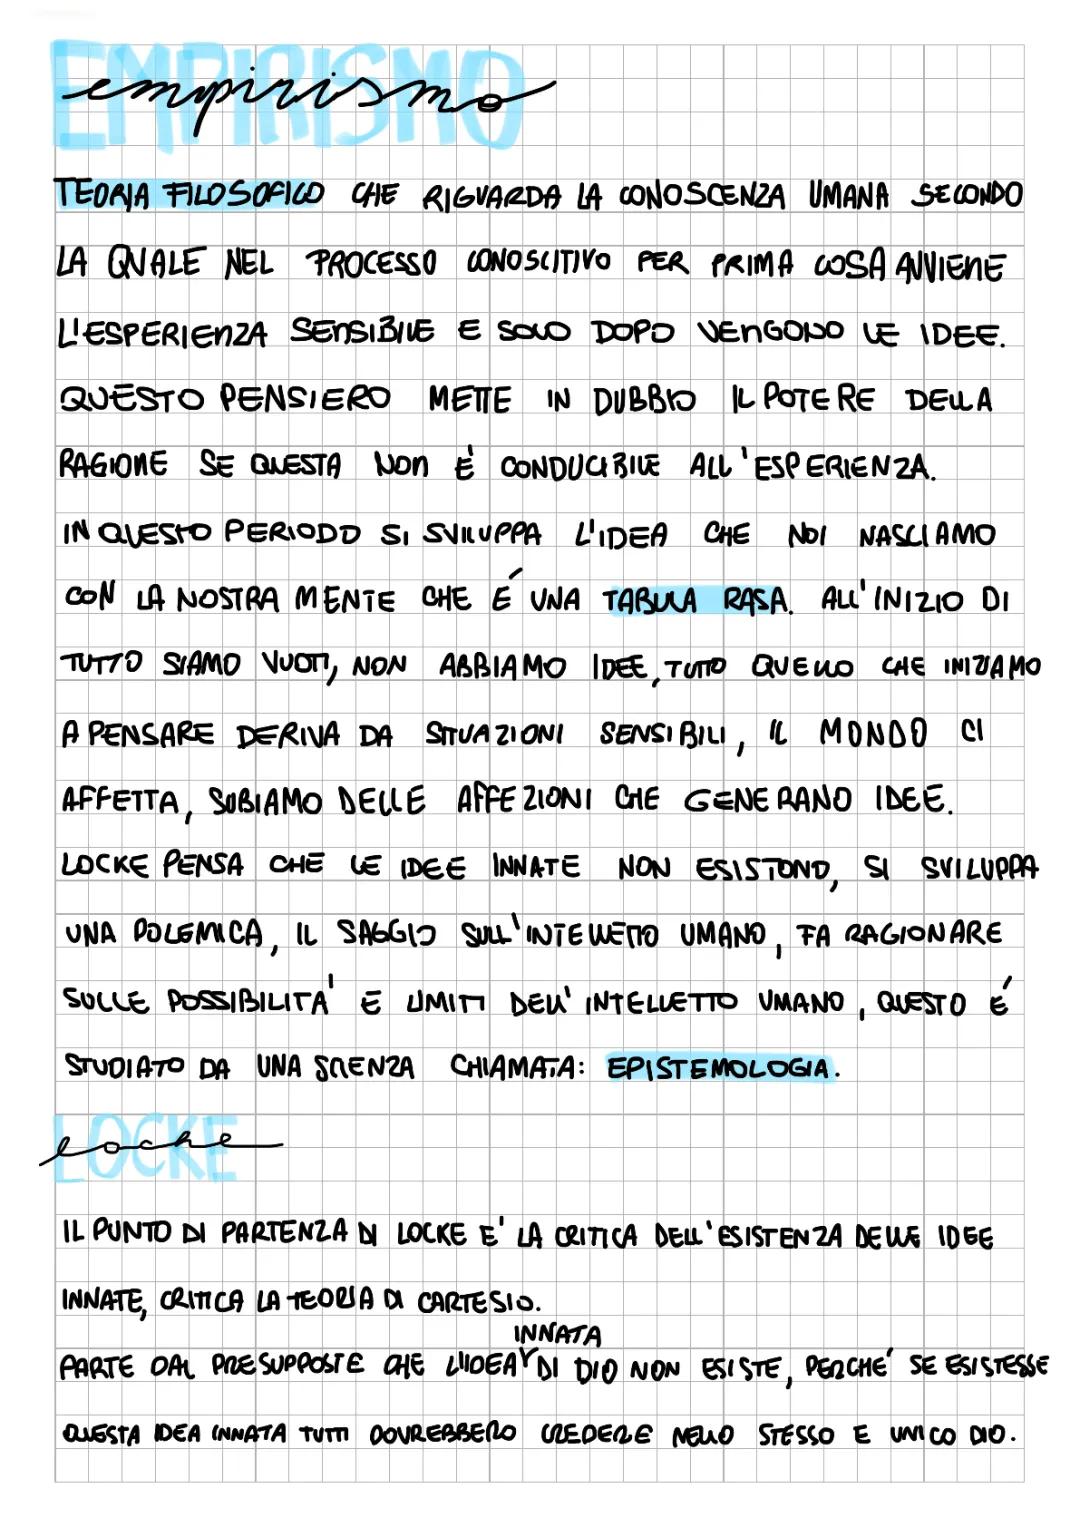 EMPIRISMO
empirismo
TEORIA FILOSOFICO CHE RIGUARDA LA CONOSCENZA UMANA SECONDO
LA QUALE NEL PROCESSO CONOSCITIVO PER PRIMA COSA AVVIENE
L'ESPERIENZA SENSIBILE E SOLO DOPO VENGONO LE IDEE.
QUESTO PENSIERO METTE IN DUBBIO IL POTERE DELLA
RAGIONE SE QUESTA NON É CONDUCIBILE ALL'ESPERIENZA.
IN QUESTO PERIODO SI SVILUPPA L'IDEA CHE NOI NASCIAMO
CON LA NOSTRA MENTE CHE É UNA TABULA RASA. ALL'INIZIO DI
TUTTO SIAMO VUOTI, NON ABBIAMO IDEE, TUTTO QUELLO CHE INIZIAMO
A PENSARE DERIVA DA SITUAZIONI SENSIBILI, IL MONDO CI
AFFETTA, SUBIAMO DELLE AFFEZIONI CHE GENERANO IDEE.
LOCKE PENSA CHE LE IDEE INNATE NON ESISTONO, SI SVILUPPA
UNA POLEMICA, IL SAGGIO SULL'INTELLETTO UMANO, FA RAGIONARE
SULLE POSSIBILITA' E LIMITI DELL'INTELLETTO UMANO, QUESTO É
STUDIATO DA UNA SCIENZA CHIAMATA: EPISTEMOLOGIA.
LOCKE
locke
IL PUNTO DI PARTENZA DI LOCKE E' LA CRITICA DELL'ESISTENZA DELLE IDEE
INNATE, CRITICA LA TEORIA DI CARTESIO.
INNATA
PARTE DAL PRESUPPOSTE CHE L'IDEA DI DIO NON ESISTE, PERCHE' SE ESISTESSE
QUESTA IDEA INNATA TUTTI DOVREBBERO CREDERE NELLO STESSO E UNICO DIO.